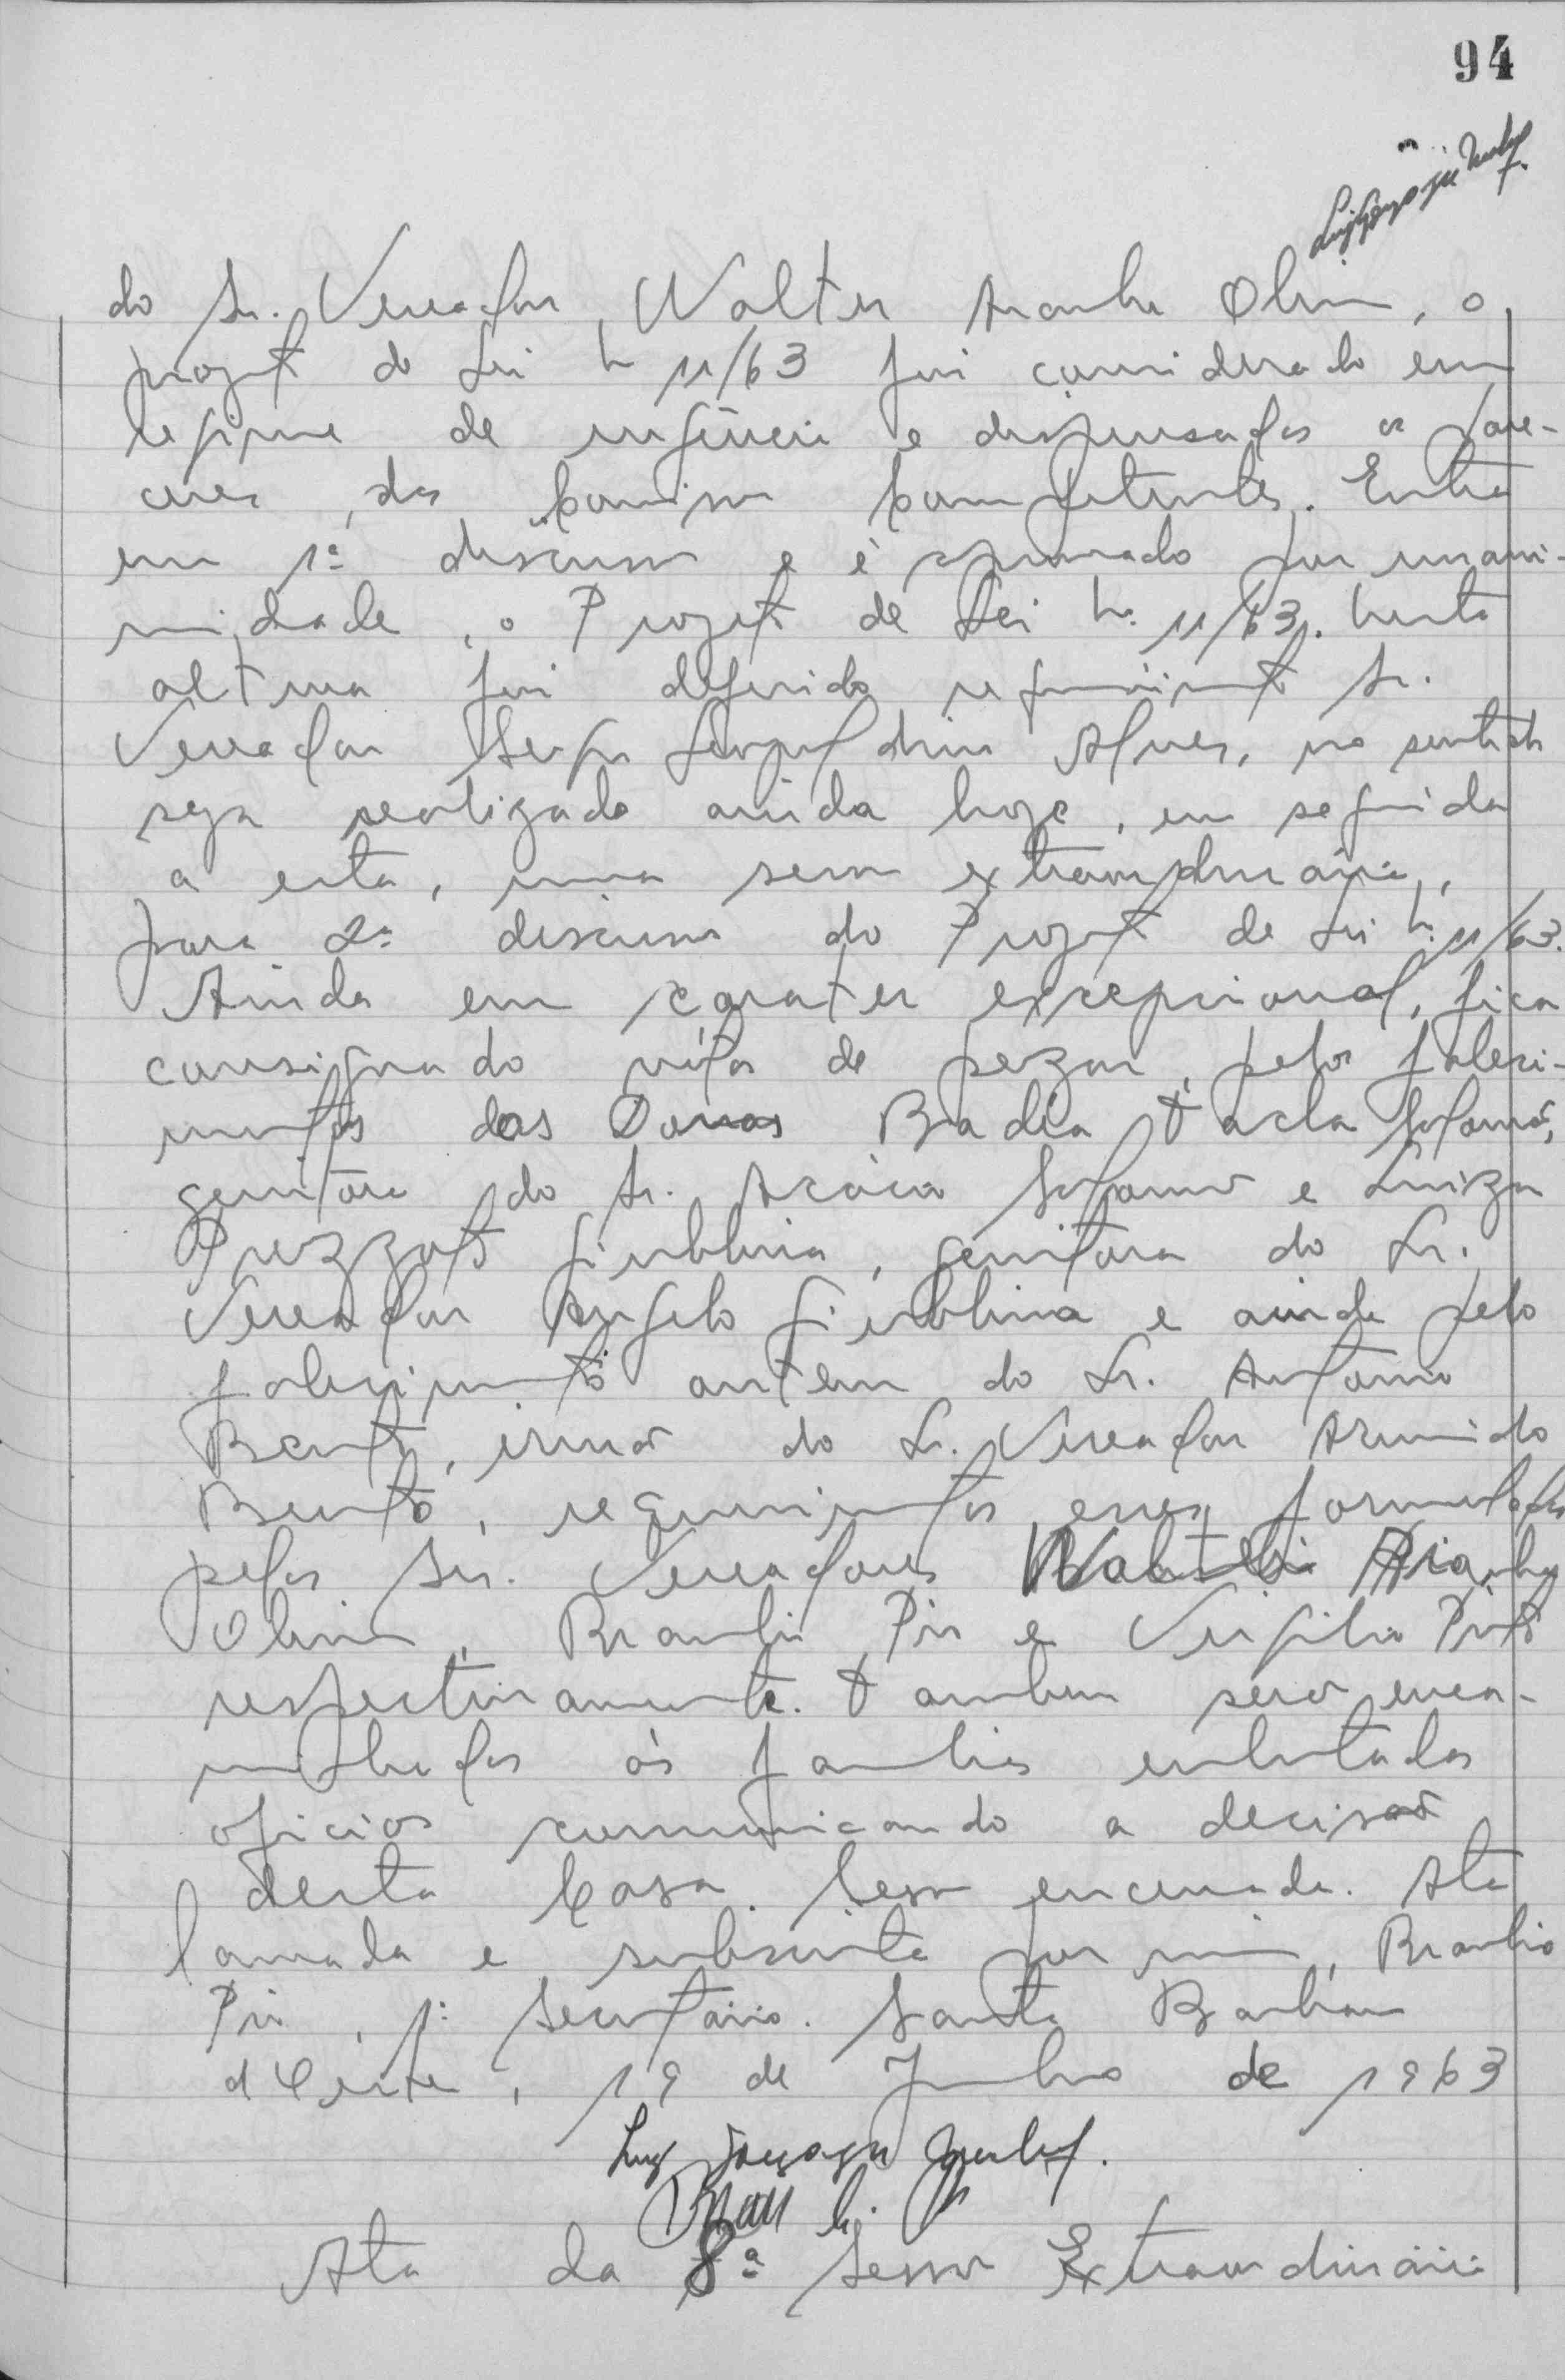 94
do Sr. Vereador, Walter Aranha Olivia, o
projeto de Lei n 11/63 foi considerado em
regime de urgência e dispensados os pare-
ceres, das Comissões Competentes. Entra
em 1ª discussão e é aprovado por unani-
midade, o Projeto de Lei n. 11/63. Nesta
altura foi deferido requerimento Sr.
Vereador Alves, no sentido
seja realizada ainda hoje, em seguida
a esta, uma sessão extraordinária,
para 2ª discussão do Projeto de Lei n. 11/63.
Ainda em carater excepcional, fica
consignado votos de pezar, pelos faleci-
mentos das Donas Badia Tacla
genitora do Sr. Acácio e Luiza
Giubbina, genitora do Sr.
Vereador Angelo Giubbina e ainda pelo
falecimento ontem do Sr. Antonio
Bento, irmão do Sr. Vereador Armindo
Bento, requerimentos esses formulados
pelos Srs. Vereadores Walter Aranha
Olivia, Braulio Pio e Virgilio Pinto
respectivamente. Tambem serão enca-
minhados às familias enlutadas
oficios comunicando a decisão
desta Casa. Sessão encerrada. Ata
lavrada e subscrita por mim, Braulio
Pio, 1º Secretário. Santa Barbara
d'Oeste, 19 de Junho de 1963
Ata da 8ª Sessão Extraordinária